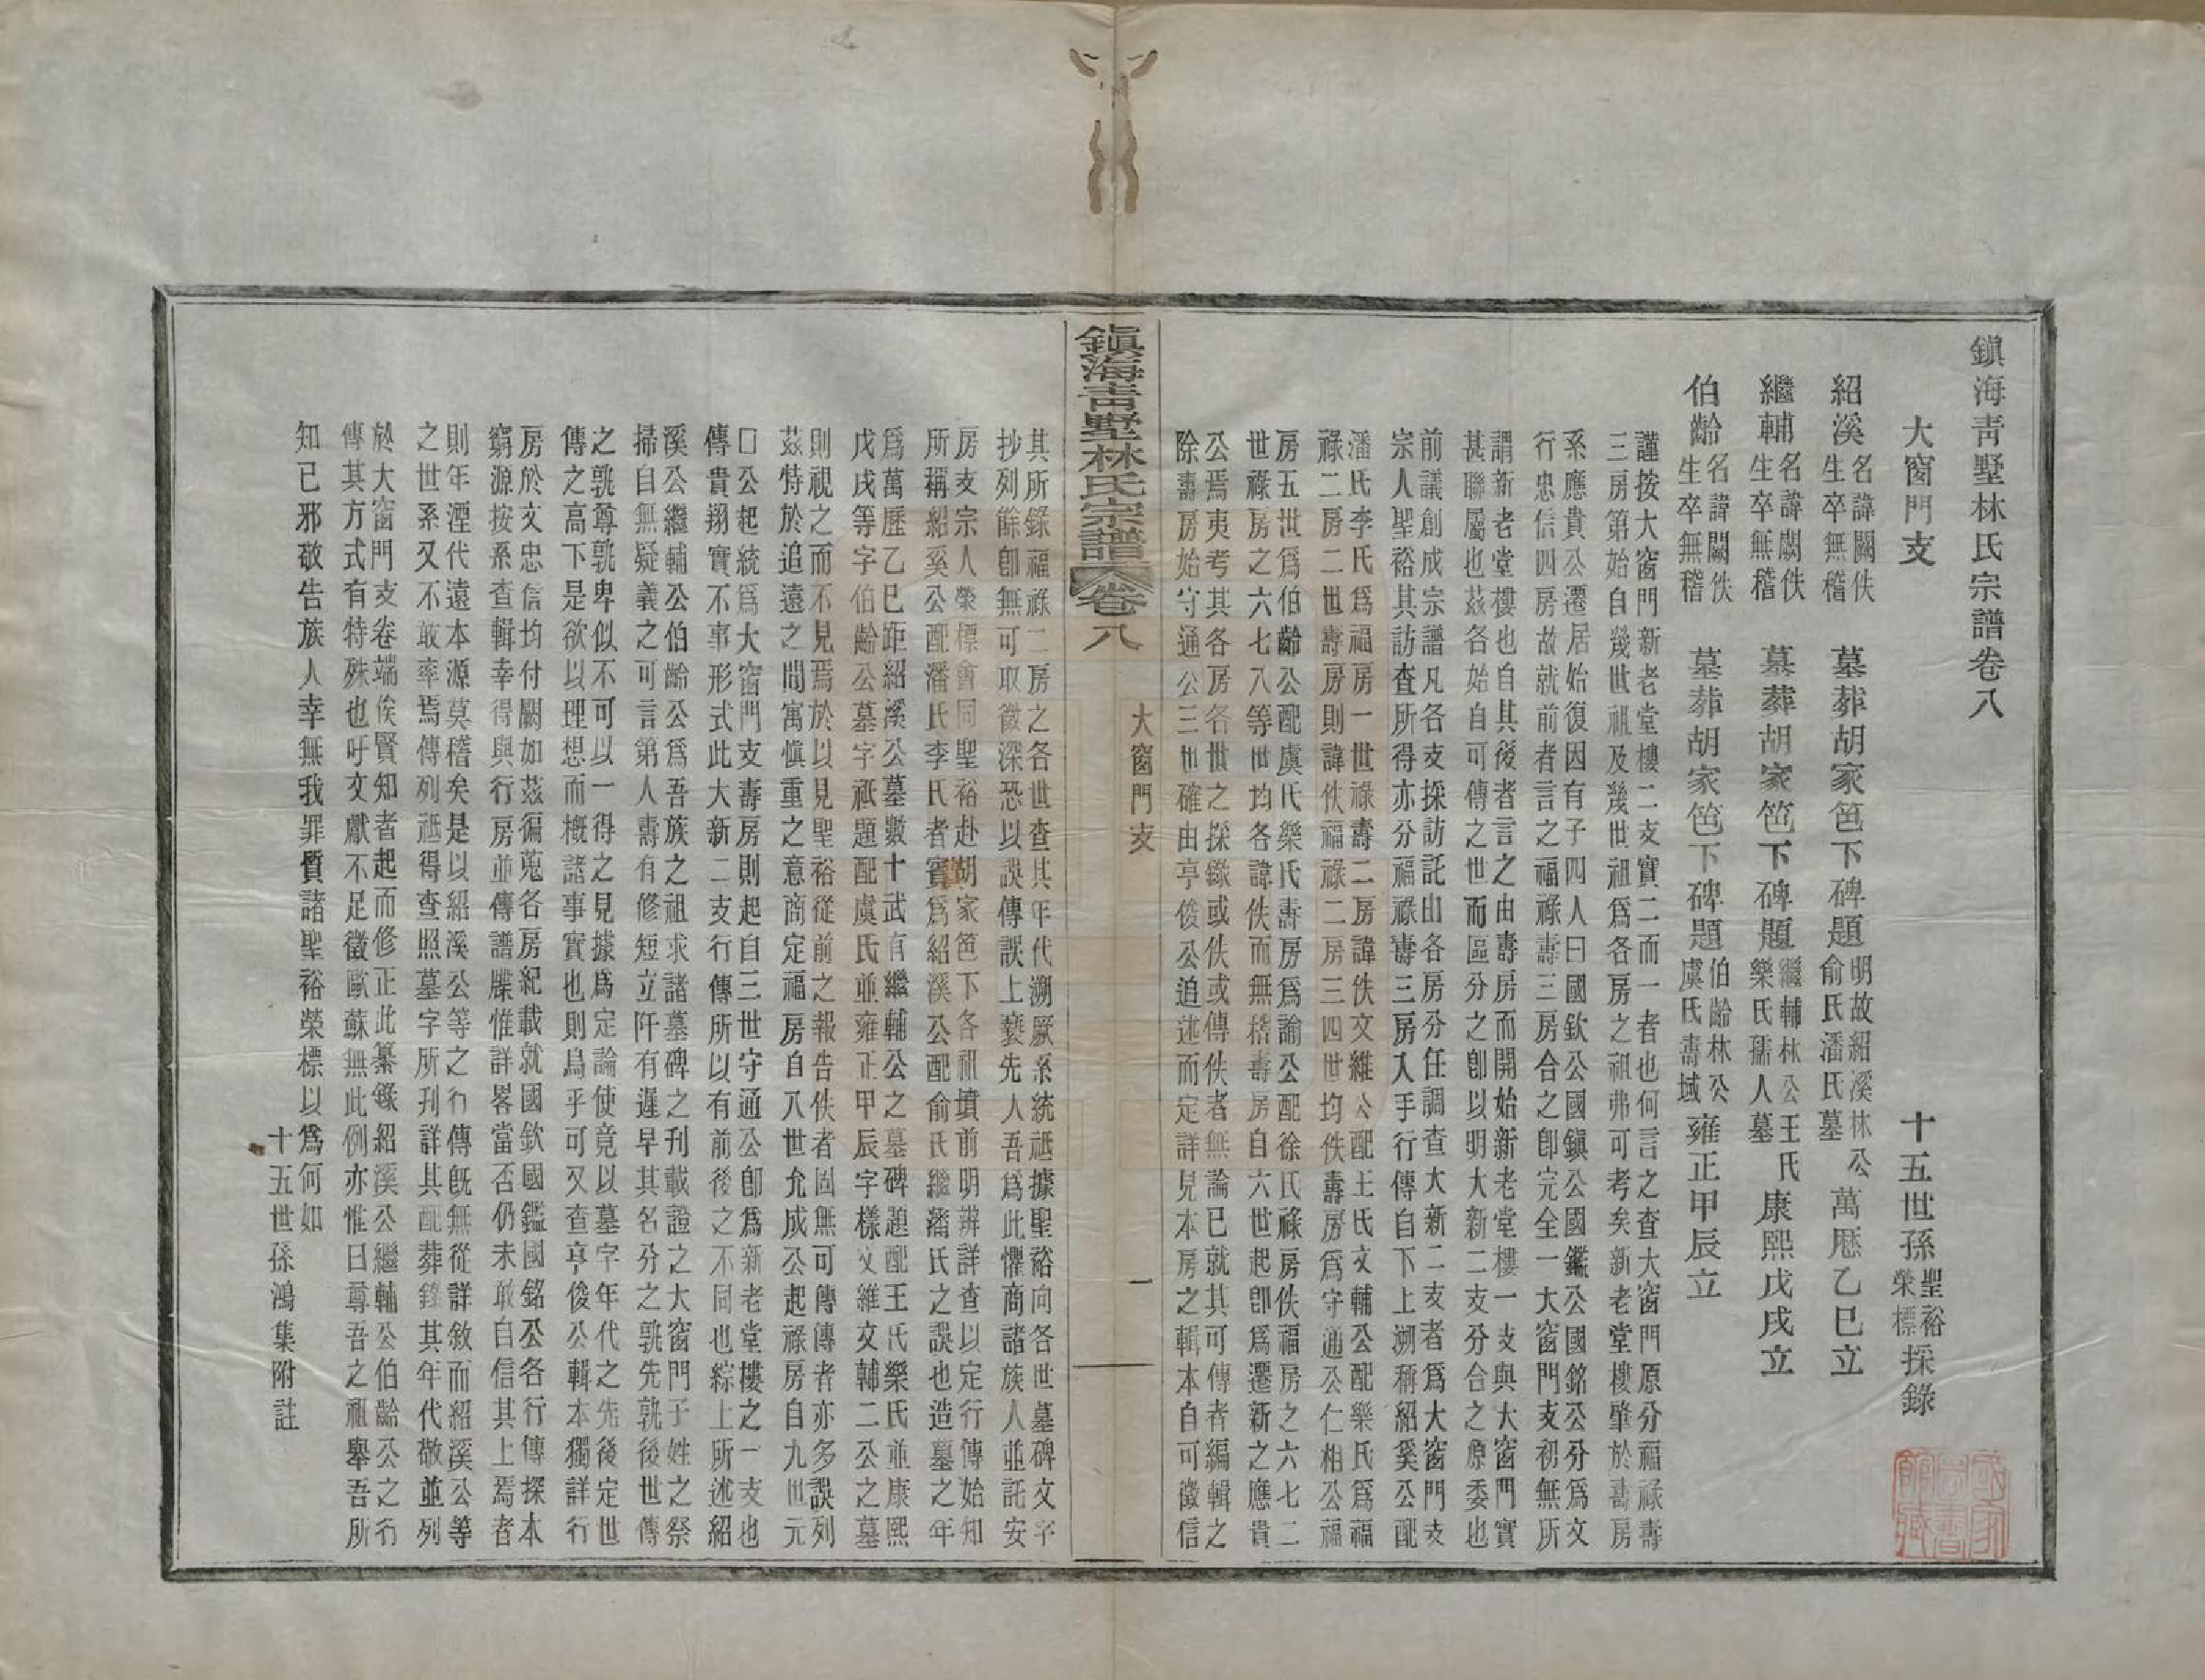 鎮海青墅林氏宗譜卷八
大窗門支
十五世孫聖裕榮標採錄
紹溪名諱闕佚生卒無稽
墓葬胡家笆下碑題明故紹溪林公俞氏潘氏墓萬厯乙巳立
繼輔名諱闕佚生卒無稽
墓葬胡家笆下碑題繼輔林公王氏樂氏孺人墓康熙戊戌立
伯齡名諱闕佚生卒無稽
墓葬胡家笆下碑題伯齡林公虞氏壽域雍正甲辰立
謹按大窗門新老堂樓二支實二而一者也何言之查大窗門原分福祿壽
三房第始自幾世祖及幾世祖爲各房之祖弗可考矣新老堂樓肇於壽房
系應貴公遷居始復因有子四人曰國欽公國鎮公國鑑公國銘公分爲文
行忠信四房故就前者言之福祿壽三房合之卽完全一大窗門支初無所
謂新老堂樓也自其後者言之由壽房而開始新老堂樓一支與大窗門實
甚聯屬也茲各始自可傳之世而區分之卽以明大新二支分合之原委也
前議創成宗譜凡各支採訪託由各房分任調查大新二支者爲大窗門支
宗人聖裕其訪查所得亦分福祿壽三房入手行傳自下上溯稱紹奚公配
潘氏李氏爲福房一世祿壽二房諱佚文維公配王氏文輔公配樂氏爲福
祿二房二世壽房則諱佚福祿二房三四世均佚壽房爲守通公仁相公福
房五世爲伯齡公配虞氏樂氏壽房爲諭公配徐氏祿房佚福房之六七二
世祿房之六七八等世均各諱佚而無稽壽房自六世起卽爲遷新之應貴
公焉夷考其各房各世之採錄或佚或傳佚者無論已就其可傳者編輯之
除壽房始守通公三世確由亭俊公追述而定詳見本房之輯本自可徵信
鎮海青墅林氏宗譜 卷八
大窗門支
一
其所錄福祿二房之各世查其年代溯厥系統祗據聖裕向各世墓碑文字
抄列餘卽無可取徵深恐以誤傳誤上褻先人吾爲此懼商諸族人並託安
房支宗人榮標會同聖裕赴胡家笆下各祖墳前明辨詳查以定行傳始知
所稱紹奚公配潘氏李氏者實爲紹溪公配俞氏繼潘氏之誤也造墓之年
爲萬歷乙巳距紹溪公墓數十武有繼輔公之墓碑題配王氏樂氏並康熙
戊戌等字伯齡公墓字祗題配虞氏並雍正甲辰字樣文維文輔二公之墓
則視之而不見焉於以見聖裕從前之報告佚者固無可傳傳者亦多誤列
茲特於追遠之間寓愼重之意商定福房自八世允成公起祿房自九世元
口公起統爲大窗門支壽房則起自三世守通公卽爲新老堂樓之一支也
傳貴翔實不事形式此大新二支行傳所以有前後之不同也綜上所述紹
溪公繼輔公伯齡公爲吾族之祖求諸墓碑之刊載證之大窗門子姓之祭
掃自無疑義之可言第人壽有修短立阡有遲早其名分之孰先孰後世傳
之孰尊孰卑似不可以一得之見據爲定論使竟以墓字年代之先後定世
傳之高下是欲以理想而槪諸事實也則烏乎可又查亭俊公輯本獨詳行
房於文忠信均付闕如茲徧蒐各房紀載就國欽國鑑國銘公各行傳探本
窮源按系查輯幸得與行房並傳譜牒惟詳畧當否仍未敢自信其上焉者
則年湮代遠本源莫稽矣是以紹溪公等之行傳旣無從詳敘而紹溪公等
之世系又不敢率焉傳列祗得查照墓字所刊詳其配葬錄其年代敬並列
於大窗門支卷端俟賢知者起而修正此纂錄紹溪公繼輔公伯齡公之行
傳其方式有特殊也吁文獻不足徵歐蘇無此例亦惟曰尊吾之祖舉吾所
知已邪敬告族人幸無我罪質諸聖裕榮標以爲何如
十五世孫鴻集附註